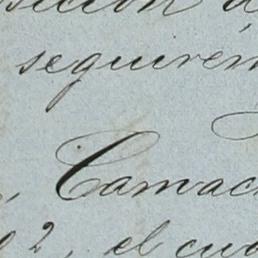 sición d
seguirem
Camac
2, el cua